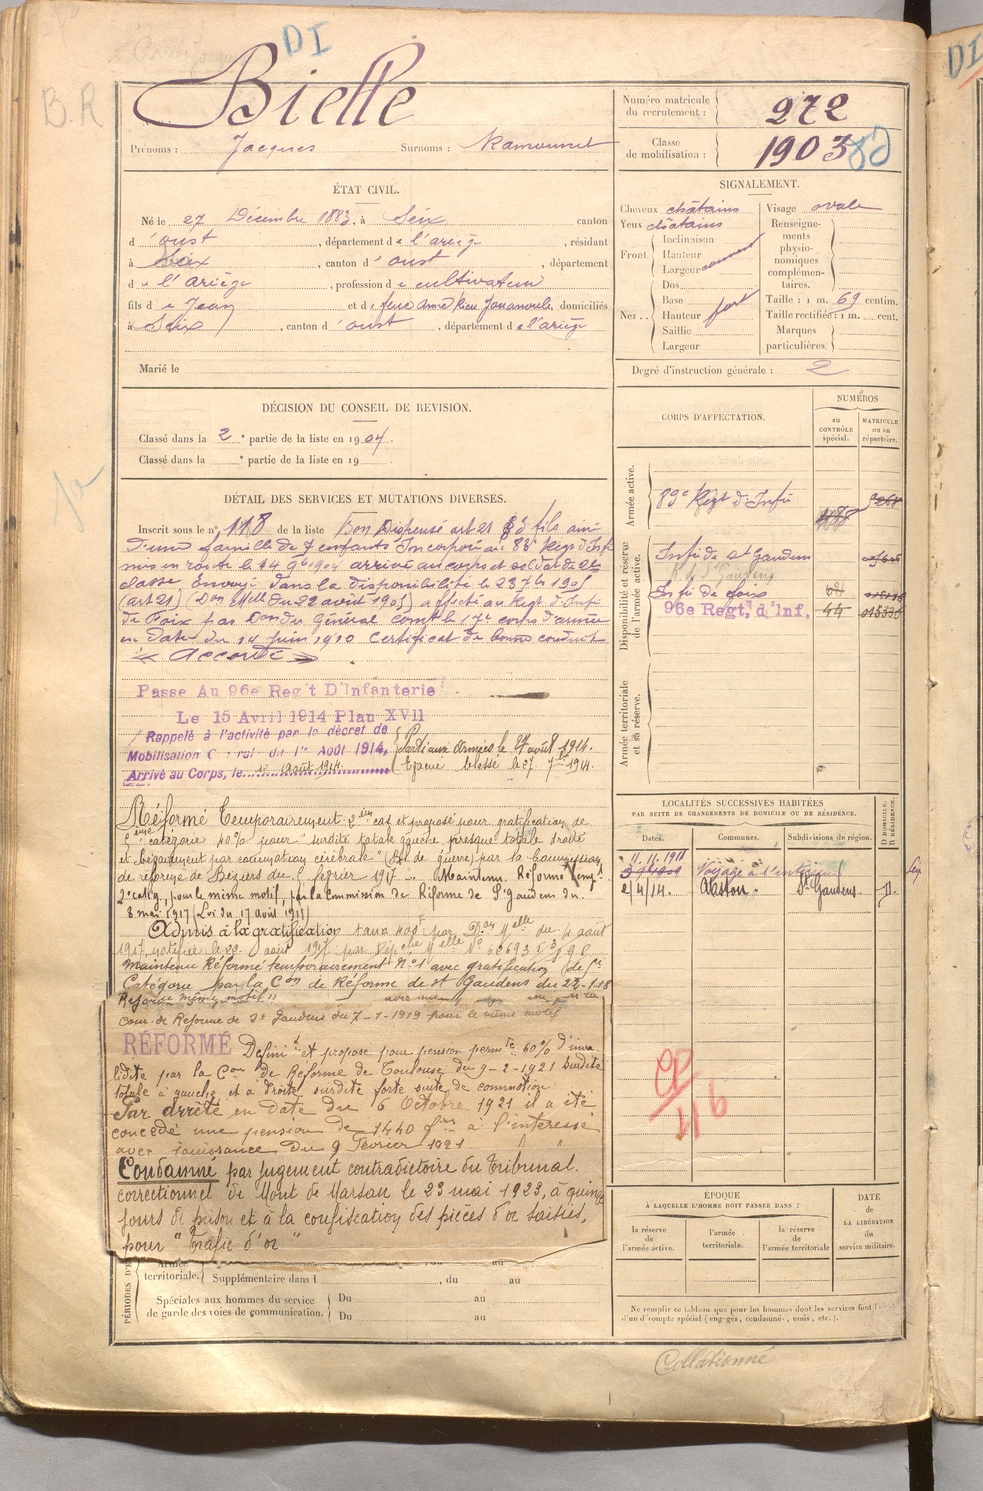 DI
B.R
Bielle
Prénoms : Jacques Surnoms : Ramounet
Numéro matricule du recrutement : 272
Classe de mobilisation : 1903
ÉTAT CIVIL.
Né le 27 Décembre 1883, à Seix canton
d'oust, département de l'ariège, résidant
à Seix, canton d'oust, département
de l'ariège, profession de cultivateur
fils de Jean et de feue anne domiciliés
à Seix, canton d'oust, département de l'ariège
Marié le
SIGNALEMENT.
Cheveux châtains
Yeux châtains
Front. Inclinaison
Hauteur
Largeur
Nez.. Dos
Base
Hauteur fort
Saillie
Largeur
Visage ovale
Renseignements physionomiques complémentaires.
Taille : 1 m. 69 centim.
Taille rectifiée : 1 m. cent.
Marques particulières.
Degré d'instruction générale : 2
DÉCISION DU CONSEIL DE REVISION.
Classé dans la 2e partie de la liste en 1904.
Classé dans la e partie de la liste en 19
DÉTAIL DES SERVICES ET MUTATIONS DIVERSES.
Inscrit sous le n° 118 de la liste Bon Dispensé art 21 fils ainé
d'une famille de 7 enfants Incorporé au 83e Régt d'Inf
mis en route le 14 9bre 1904 arrivé au corps et soldat de 2e
classe Envoyé dans la disponibilité le 23 7bre 1905
(art 21) (Don Mlle du 22 août 1905) affecté au Régt d'Inf
de Foix par Don du Général Comt le 17e corps d'armée
en date du 14 Juin 1910 Certificat de bonne conduite
Accordé
Passe Au 96e Reg't D'Infanterie
Le 15 Avril 1914 Plan XVII
Rappelé à l'activité par le décret de
Mobilisation du 1er Août 1914,
Arrivé au Corps, le août 1914.
Parti aux Armées le août 1914.
Evacué blessé le 27 7bre 1914.
Réformé Temporairement 2ème cat et proposé pour gratification de
catégorie pour "surdité totale gauche, presque totale droite
et bégaiement par commotion cérébrale" (Bl. de guerre) par la Commission
de réforme de Béziers du février 1917. Maintenu Réformé Temp.t
2e catég., pour le même motif, par la Commission de Réforme de St Gaudens du
8 mai 1917 (Loi du 17 août 1917)
Admis à la gratification par Don Melle du août
1917, notifiée le 20 août 1917
Maintenu Réformé temporairement N°1 avec gratification de
Catégorie par la Con de Réforme de St Gaudens du 22-1-18
com. de Réforme de St Gaudens du 7-1-1919 pour le même motif
RÉFORMÉ Définit et proposé pour pension permte 60% d'inva
lidité par la Con de Réforme de Toulouse du 9-2-1921 Surdité
totale à gauche et à droite surdité forte suite de commotion
Par arrêté en date du 6 Octobre 1921 il a été
concédé une pension de 1440 frs à l'intéressé
avec jouissance du 9 Février 1921
Condamné par jugement contradictoire du Tribunal
correctionnel de Mont de Marsan le 23 mai 1923, à quinze
jours de prison et à la confiscation des pièces d'or saisies,
pour "Trafic d'or"
PÉRIODES D'E
Armée territoriale. Supplémentaire dans l , du au
Spéciales aux hommes du service de garde des voies de communication. Du au
Du au
CORPS D'AFFECTATION.
NUMÉROS
au CONTRÔLE spécial.
MATRICULE ou au répertoire.
Armée active.
83e Régt d'Infie
Disponibilité et réserve de l'armée active.
Infie de St Gaudens
Infie de foix
96e Regt, d'Inf. 44
Armée territoriale et sa réserve.
LOCALITÉS SUCCESSIVES HABITÉES
PAR SUITE DE CHANGEMENTS DE DOMICILE OU DE RÉSIDENCE.
Dates. Communes. Subdivisions de région. D DOMICILE. R RÉSIDENCE.
11.11.1911 Voyage à l'intérieur
2/4/14. St Gaudens D.
ÉPOQUE
À LAQUELLE L'HOMME DOIT PASSER DANS :
la réserve de l'armée active.
l'armée territoriale.
la réserve de l'armée territoriale
DATE de LA LIBÉRATION du service militaire.
Ne remplir ce tableau que pour les hommes dont les services font
d'un décompte spécial (engagés, condamnés, omis, etc.).
Collationné
DI